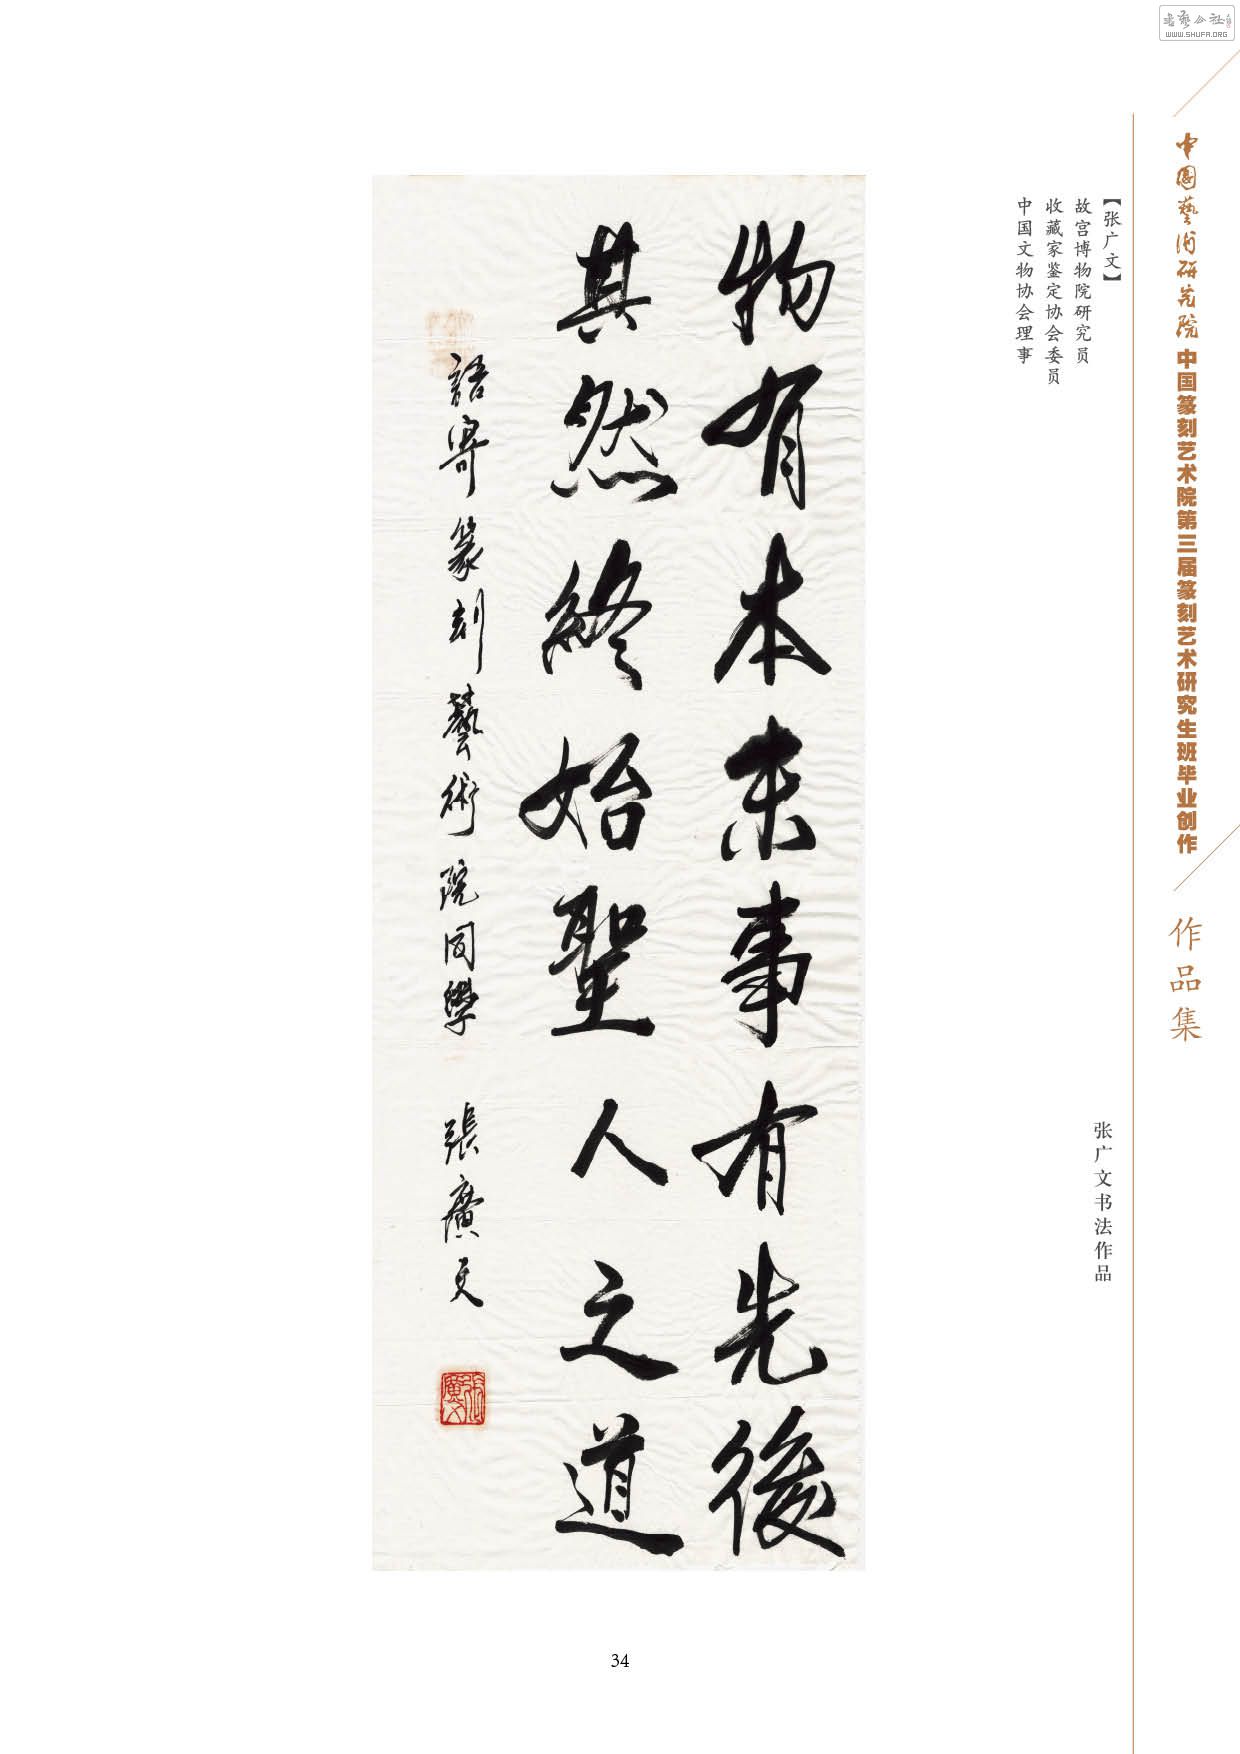 书艺公社
WWW.SHUFA.ORG
中國藝術研究院 中国篆刻艺术院第三届篆刻艺术研究生班毕业创作
作品集
【张广文】
故宫博物院研究员
收藏家鉴定协会委员
中国文物协会理事
张广文书法作品
物有本末事有先後
其然終始聖人之道
語寄篆刻藝術院同學 張廣文
張廣文
34